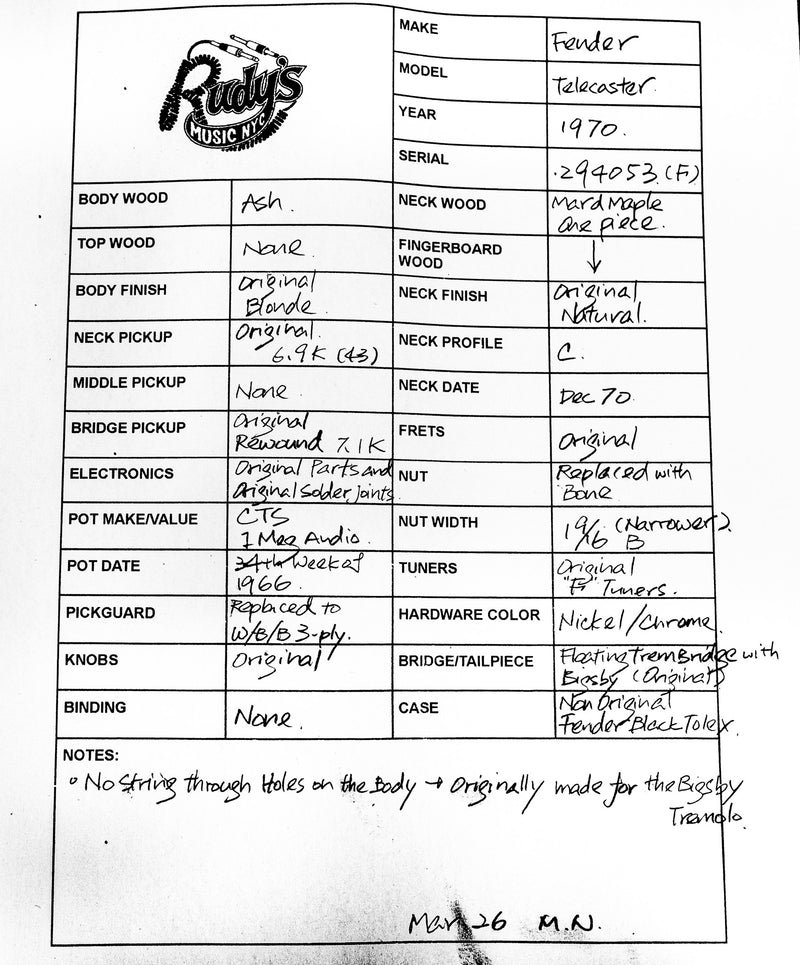 Rudy's
MUSIC NYC
MAKE
Fender
MODEL
Telecaster.
YEAR
1970.
SERIAL
294053 (F)
BODY WOOD
Ash.
NECK WOOD
Hard Maple
One piece.
TOP WOOD
None
FINGERBOARD
WOOD
↓
BODY FINISH
Original
Blonde.
NECK FINISH
Original
Natural.
NECK PICKUP
Original.
6.9K (43)
NECK PROFILE
C.
MIDDLE PICKUP
None.
NECK DATE
Dec 70.
BRIDGE PICKUP
Original
Rewound 7.1K
FRETS
Original
ELECTRONICS
Original Parts and
Original Solder Joints.
NUT
Replaced with
Bone.
POT MAKE/VALUE
CTS
1 Meg Audio.
NUT WIDTH
1 9/16 (Narrower).
B
POT DATE
34th Week of
1966.
TUNERS
Original
"F" Tuners.
PICKGUARD
Replaced to
W/B/B 3-ply.
HARDWARE COLOR
Nickel/Chrome.
KNOBS
Original
BRIDGE/TAILPIECE
Floating Trem Bridge with
Bigsby (Original)
BINDING
None.
CASE
Non Original
Fender Black Tolex.
NOTES:
• No String through Holes on the Body → Originally made for the Bigsby
Tremolo.
Mar 26 M.N.